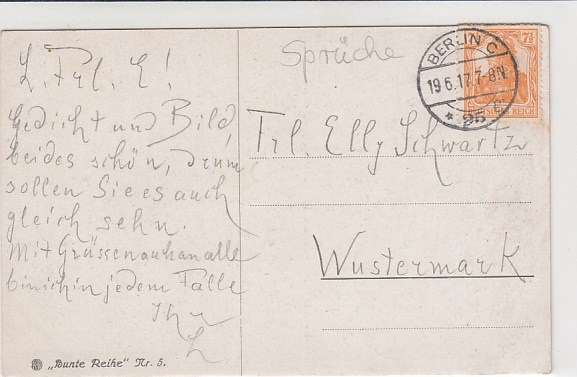 L. Frl. E!
Gedicht und Bild,
beides schön, drum
sollen Sie es auch
gleich sehn.
Mit Grüssen auch an alle
bin ich in jedem Falle
Ihr
L
„Bunte Reihe“ Nr. 5.
Sprüche
BERLIN C
19.6.17.7-8N.
* 25 c
7½
REICH
Frl. Elly Schwartz
Wustermark